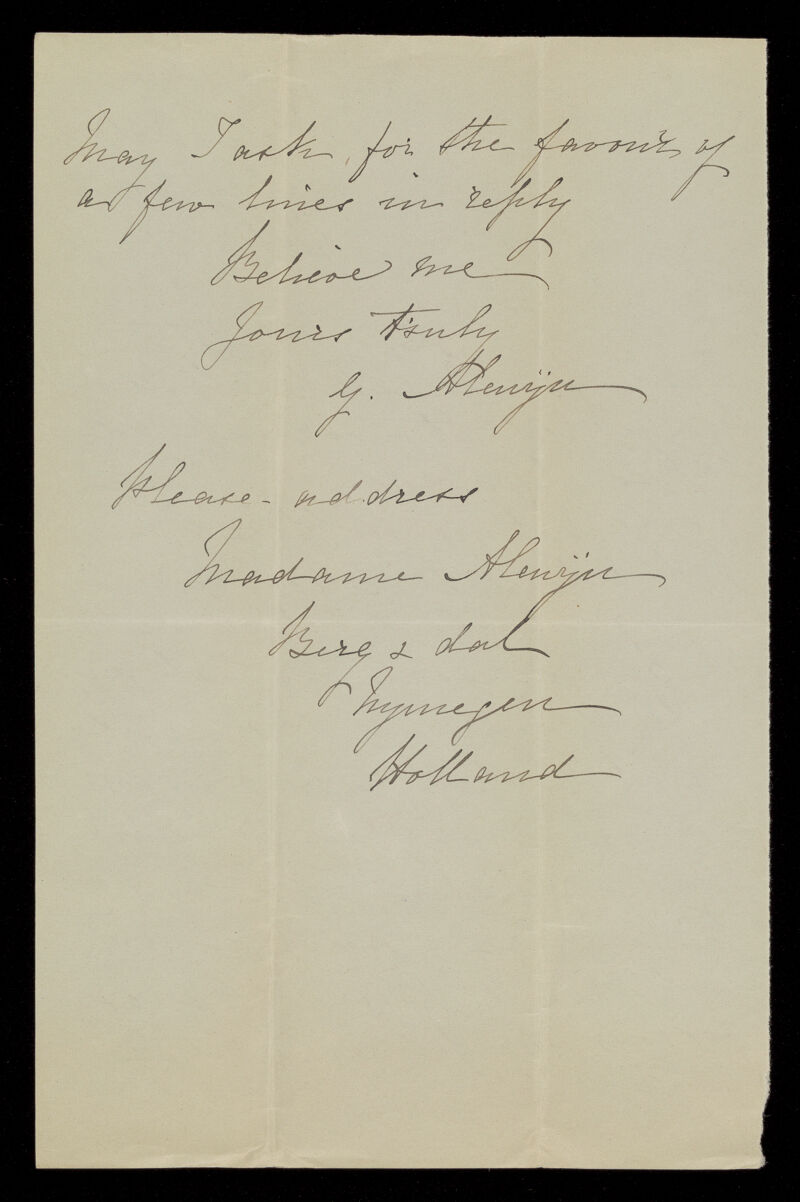 May I ask for the favour of
a few lines in reply
Believe me
Yours truly
G. Alewijn
Please address
Madame Alewijn
Berg & dal
Nymegen
Holland